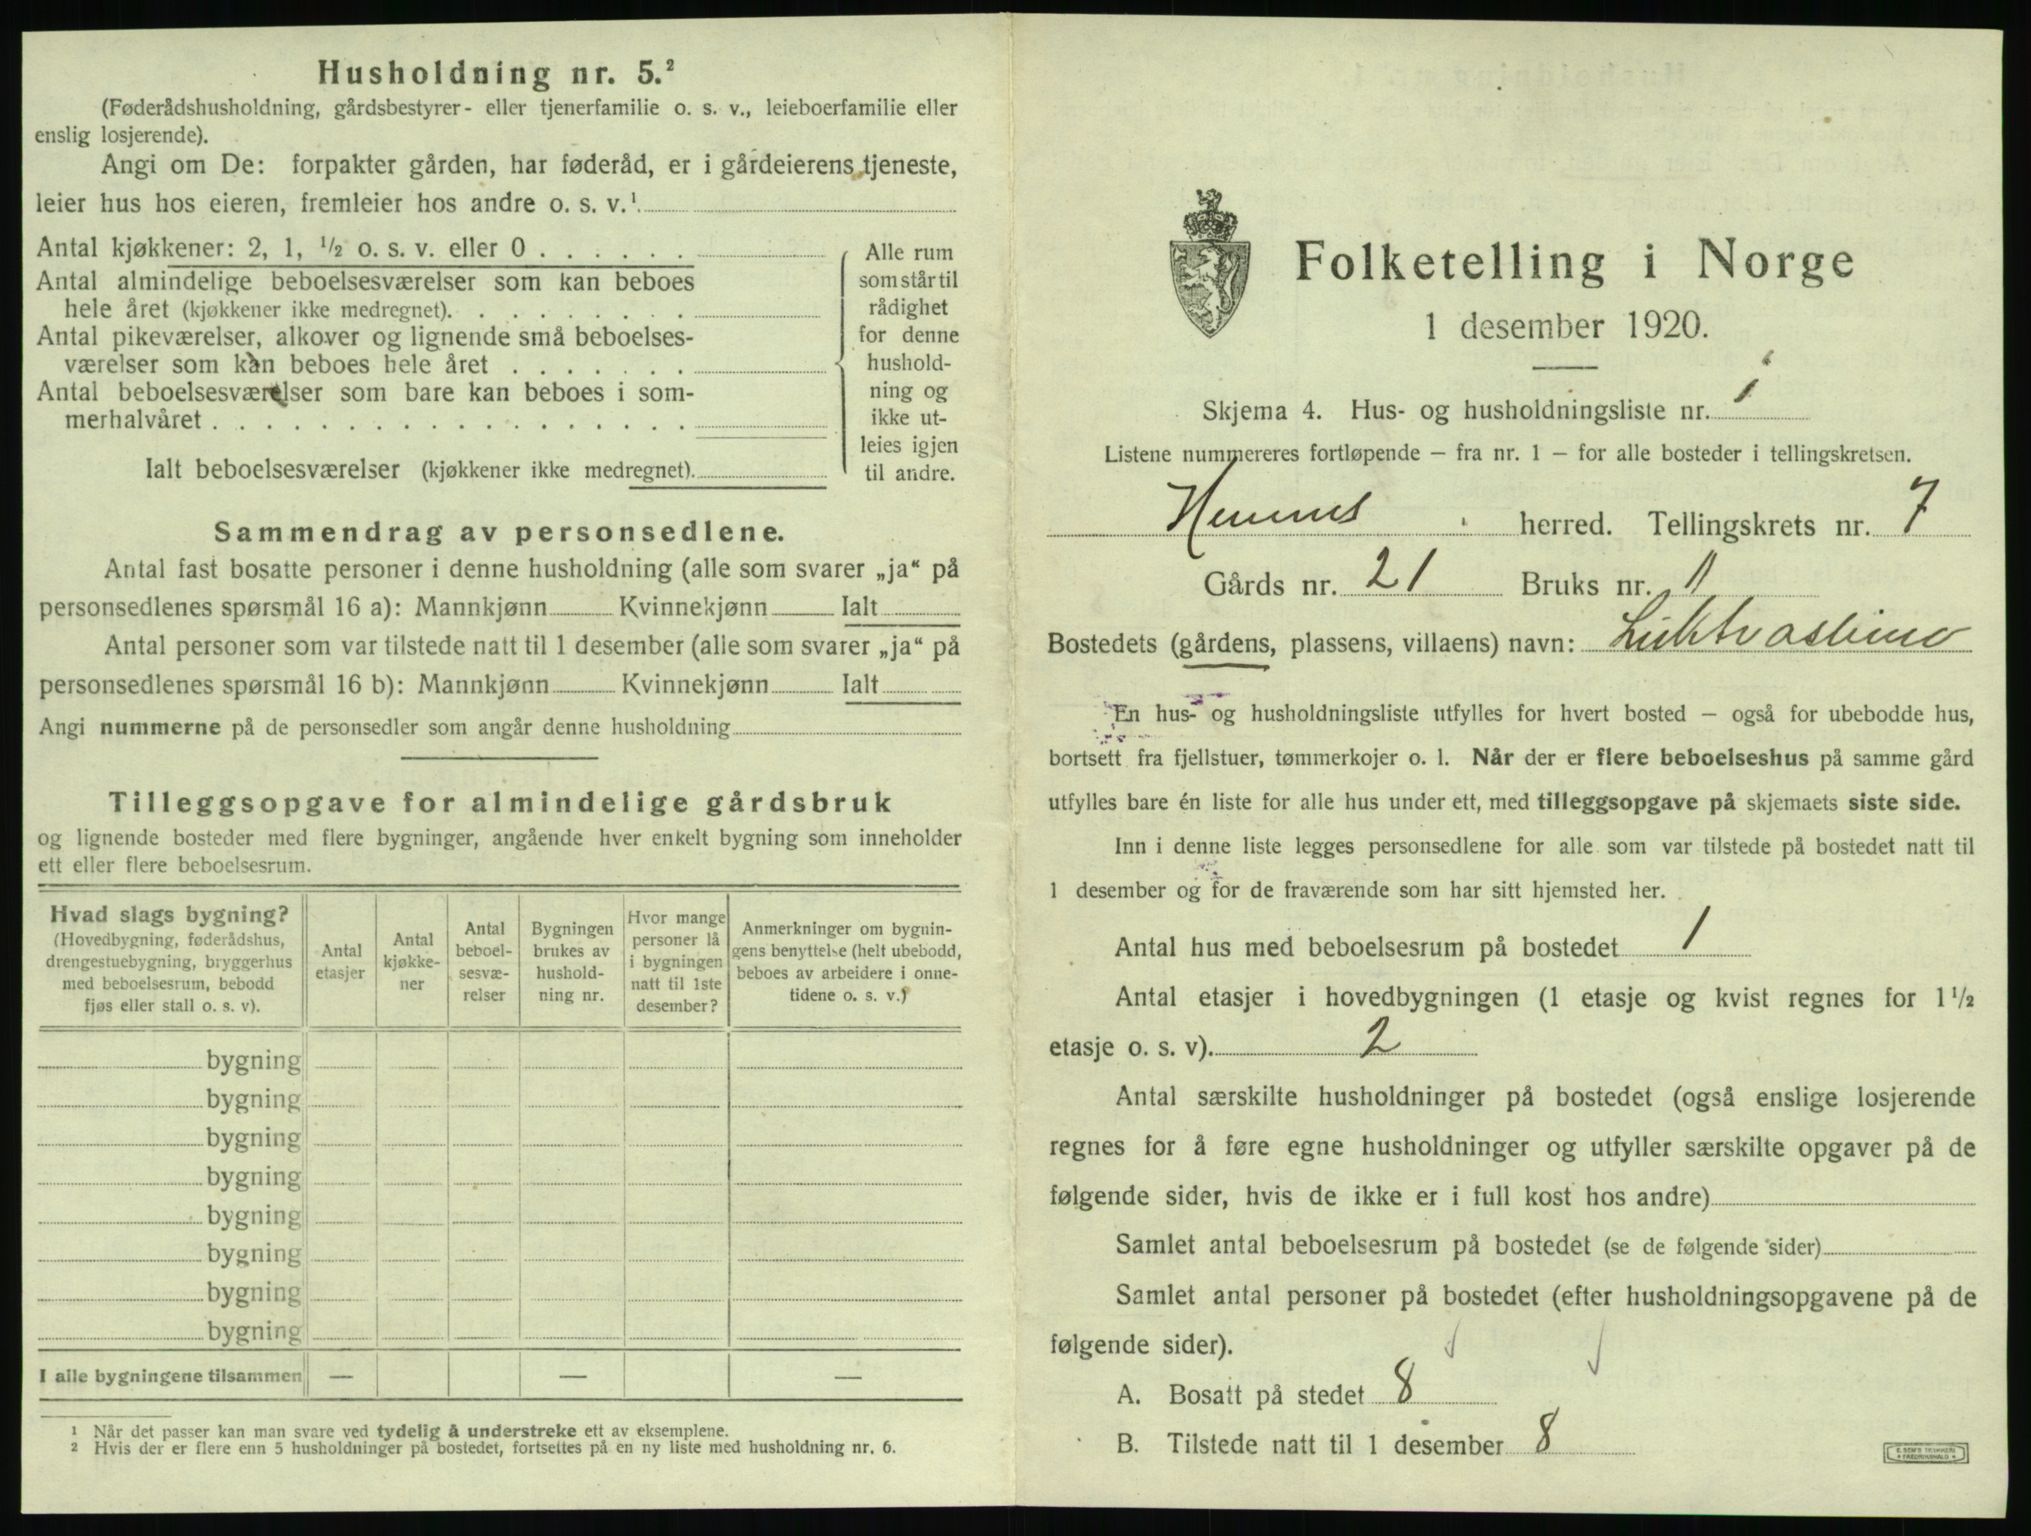 Husholdning nr. 5.²
(Føderådshusholdning, gårdsbestyrer- eller tjenerfamilie o. s. v., leieboerfamilie eller
enslig losjerende).
Angi om De: forpakter gården, har føderåd, er i gårdeierens tjeneste,
leier hus hos eieren, fremleier hos andre o. s. v.¹
Antal kjøkkener: 2, 1, ½ o. s. v. eller 0
Antal almindelige beboelsesværelser som kan beboes
hele året (kjøkkener ikke medregnet)
Antal pikeværelser, alkover og lignende små beboelses-
værelser som kan beboes hele året
Antal beboelsesværelser som bare kan beboes i som-
merhalvåret
Ialt beboelsesværelser (kjøkkener ikke medregnet)
Alle rum
som står til
rådighet
for denne
hushold-
ning og
ikke ut-
leies igjen
til andre.
Sammendrag av personsedlene.
Antal fast bosatte personer i denne husholdning (alle som svarer „ja“ på
personsedlenes spørsmål 16 a): Mannkjønn Kvinnekjønn Ialt
Antal personer som var tilstede natt til 1 desember (alle som svarer „ja“ på
personsedlenes spørsmål 16 b): Mannkjønn Kvinnekjønn Ialt
Angi nummerne på de personsedler som angår denne husholdning
Tilleggsopgave for almindelige gårdsbruk
og lignende bosteder med flere bygninger, angående hver enkelt bygning som inneholder
ett eller flere beboelsesrum.
Hvad slags bygning?
(Hovedbygning, føderådshus,
drengestuebygning, bryggerhus
med beboelsesrum, bebodd
fjøs eller stall o. s. v).
Antal
etasjer
Antal
kjøkke-
ner
Antal
beboel-
sesvæ-
relser
Bygningen
brukes av
hushold-
ning nr.
Hvor mange
personer lå
i bygningen
natt til 1ste
desember?
Anmerkninger om bygnin-
gens benyttelse (helt ubebodd,
beboes av arbeidere i onne-
tidene o. s. v.)
bygning
bygning
bygning
bygning
bygning
bygning
bygning
bygning
I alle bygningene tilsammen — — —
¹ Når det passer kan man svare ved tydelig å understreke ett av eksemplene.
² Hvis der er flere enn 5 husholdninger på bostedet, fortsettes på en ny liste med husholdning nr. 6.
Folketelling i Norge
1 desember 1920.
Skjema 4. Hus- og husholdningsliste nr. 1
Listene nummereres fortløpende – fra nr. 1 – for alle bosteder i tellingskretsen.
Hemnes herred. Tellingskrets nr. 7
Gårds nr. 21 Bruks nr. 11
Bostedets (gårdens, plassens, villaens) navn:
En hus- og husholdningsliste utfylles for hvert bosted – også for ubebodde hus,
bortsett fra fjellstuer, tømmerkojer o. l. Når der er flere beboelseshus på samme gård
utfylles bare én liste for alle hus under ett, med tilleggsopgave på skjemaets siste side.
Inn i denne liste legges personsedlene for alle som var tilstede på bostedet natt til
1 desember og for de fraværende som har sitt hjemsted her.
Antal hus med beboelsesrum på bostedet 1
Antal etasjer i hovedbygningen (1 etasje og kvist regnes for 1½
etasje o. s. v). 2
Antal særskilte husholdninger på bostedet (også enslige losjerende
regnes for å føre egne husholdninger og utfyller særskilte opgaver på de
følgende sider, hvis de ikke er i full kost hos andre)
Samlet antal beboelsesrum på bostedet (se de følgende sider)
Samlet antal personer på bostedet (efter husholdningsopgavene på de
følgende sider).
A. Bosatt på stedet 8
B. Tilstede natt til 1 desember 8